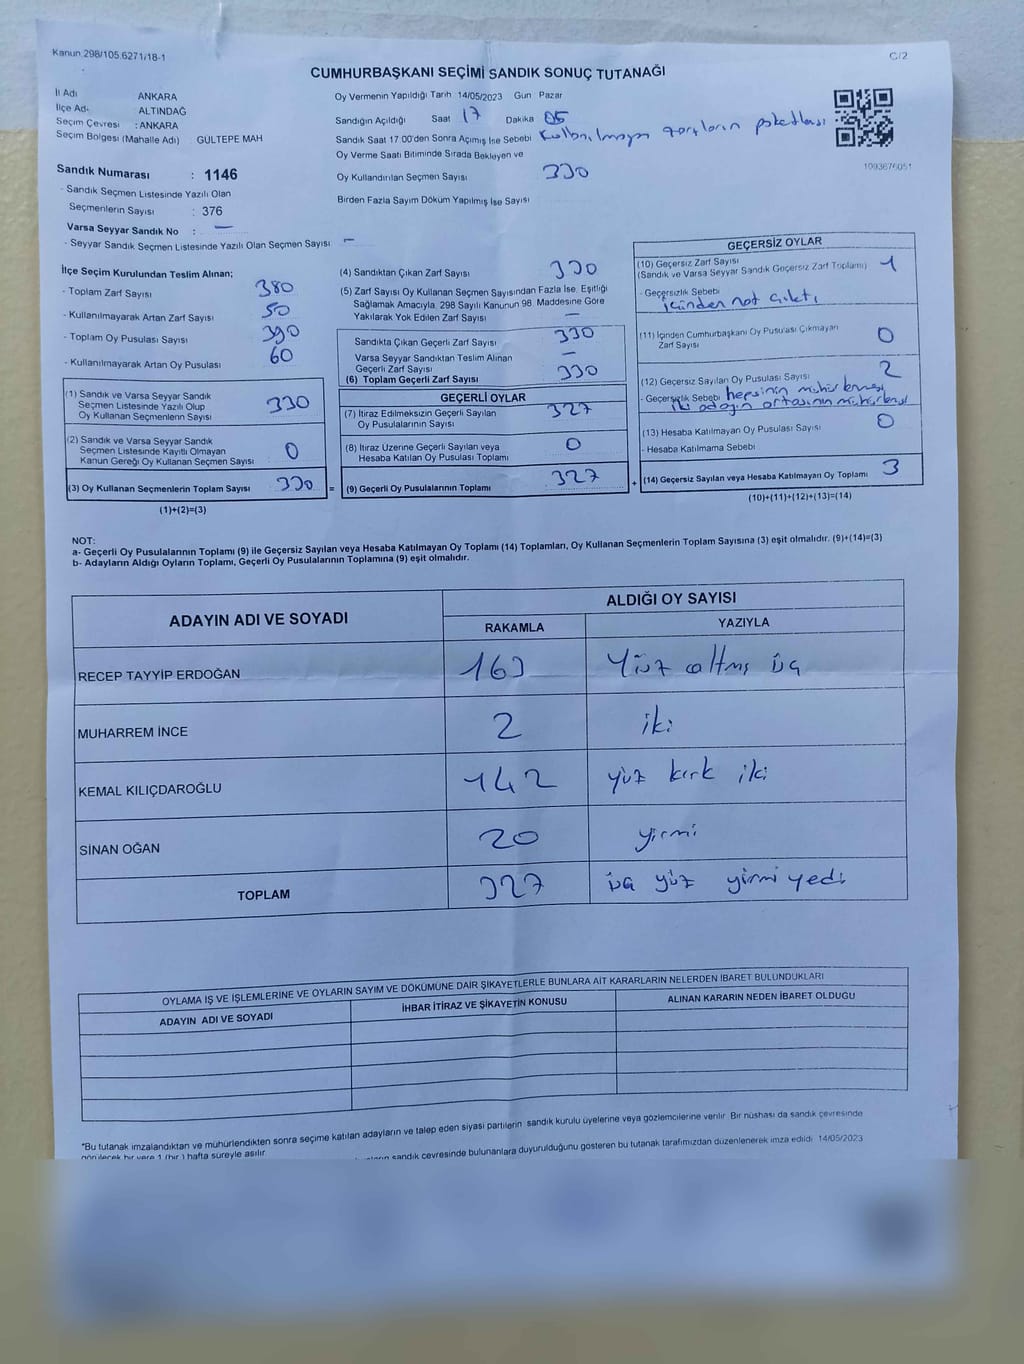 Kanun 298/105 6271/18-1
C/2
CUMHURBAŞKANI SEÇİMİ SANDIK SONUÇ TUTANAĞI
İl Adı ANKARA
İlçe Adı ALTINDAĞ
Seçim Çevresi : ANKARA
Seçim Bölgesi (Mahalle Adı) GÜLTEPE MAH
Sandık Numarası : 1146
- Sandık Seçmen Listesinde Yazılı Olan
Seçmenlerin Sayısı : 376
Varsa Seyyar Sandık No : —
- Seyyar Sandık Seçmen Listesinde Yazılı Olan Seçmen Sayısı —
Oy Vermenin Yapıldığı Tarih 14/05/2023 Gün Pazar
Sandığın Açıldığı Saat 17 Dakika 05
Sandık Saat 17 00'den Sonra Açımış İse Sebebi Kullanılmayan zarfların paketlması
Oy Verme Saati Bitiminde Sırada Bekleyen ve
Oy Kullandırılan Seçmen Sayısı 330
Birden Fazla Sayım Döküm Yapılmış İse Sayısı
1093676051
İlçe Seçim Kurulundan Teslim Alınan;
- Toplam Zarf Sayısı 380
- Kullanılmayarak Artan Zarf Sayısı 50
- Toplam Oy Pusulası Sayısı 390
- Kullanılmayarak Artan Oy Pusulası 60
(1) Sandık ve Varsa Seyyar Sandık
Seçmen Listesinde Yazılı Olup
Oy Kullanan Seçmenlerin Sayısı 330
(2) Sandık ve Varsa Seyyar Sandık
Seçmen Listesinde Kayıtlı Olmayan
Kanun Gereği Oy Kullanan Seçmen Sayısı 0
(3) Oy Kullanan Seçmenlerin Toplam Sayısı 330 =
(1)+(2)=(3)
(4) Sandıktan Çıkan Zarf Sayısı 330
(5) Zarf Sayısı Oy Kullanan Seçmen Sayısından Fazla İse, Eşitliği
Sağlamak Amacıyla, 298 Sayılı Kanunun 98. Maddesine Göre
Yakılarak Yok Edilen Zarf Sayısı —
Sandıkta Çıkan Geçerli Zarf Sayısı 330
Varsa Seyyar Sandıktan Teslim Alınan
Geçerli Zarf Sayısı —
(6) Toplam Geçerli Zarf Sayısı 330
GEÇERLİ OYLAR
(7) İtiraz Edilmeksizin Geçerli Sayılan
Oy Pusulalarının Sayısı 327
(8) İtiraz Üzerine Geçerli Sayılan veya
Hesaba Katılan Oy Pusulası Toplamı 0
(9) Geçerli Oy Pusulalarının Toplamı 327 +
GEÇERSİZ OYLAR
(10) Geçersiz Zarf Sayısı
(Sandık ve Varsa Seyyar Sandık Geçersiz Zarf Toplamı) 1
- Geçersizlik Sebebi
içinden not çıktı
(11) İçinden Cumhurbaşkanı Oy Pusulası Çıkmayan
Zarf Sayısı 0
(12) Geçersiz Sayılan Oy Pusulası Sayısı 2
- Geçersizlik Sebebi hepsinin mühürlenmesi
iki adayın ortasının
(13) Hesaba Katılmayan Oy Pusulası Sayısı 0
- Hesaba Katılmama Sebebi
(14) Geçersiz Sayılan veya Hesaba Katılmayan Oy Toplamı 3
(10)+(11)+(12)+(13)=(14)
NOT:
a- Geçerli Oy Pusulalarının Toplamı (9) ile Geçersiz Sayılan veya Hesaba Katılmayan Oy Toplamı (14) Toplamları, Oy Kullanan Seçmenlerin Toplam Sayısına (3) eşit olmalıdır. (9)+(14)=(3)
b- Adayların Aldığı Oyların Toplamı, Geçerli Oy Pusulalarının Toplamına (9) eşit olmalıdır.
ADAYIN ADI VE SOYADI
ALDIĞI OY SAYISI
RAKAMLA YAZIYLA
RECEP TAYYİP ERDOĞAN 163 Yüz altmış üç
MUHARREM İNCE 2 iki
KEMAL KILIÇDAROĞLU 142 yüz kırk iki
SİNAN OĞAN 20 yirmi
TOPLAM 327 üç yüz yirmi yedi
OYLAMA İŞ VE İŞLEMLERİNE VE OYLARIN SAYIM VE DÖKÜMÜNE DAİR ŞİKAYETLERLE BUNLARA AİT KARARLARIN NELERDEN İBARET BULUNDUKLARI
ADAYIN ADI VE SOYADI İHBAR İTİRAZ VE ŞİKAYETİN KONUSU ALINAN KARARIN NEDEN İBARET OLDUĞU
*Bu tutanak imzalandıktan ve mühürlendikten sonra seçime katılan adayların ve talep eden siyasi partilerin sandık kurulu üyelerine veya gözlemcilerine verilir. Bir nüshası da sandık çevresinde
görülecek bir yere 1 (bir ) hafta süreyle asılır.
sandık çevresinde bulunanlara duyurulduğunu gösteren bu tutanak tarafımızdan düzenlenerek imza edildi. 14/05/2023